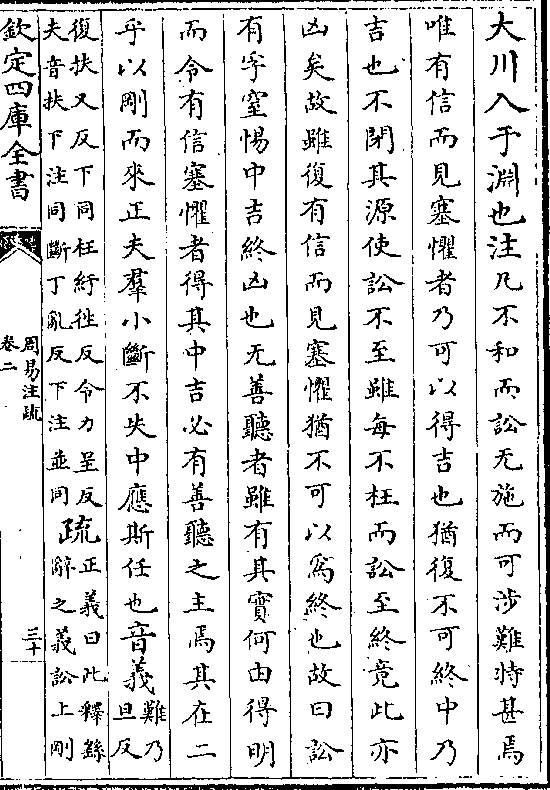 大川入于淵也注凡不和而訟无施而可涉難特甚焉
唯有信而見塞懼者乃可以得吉也猶復不可終中乃
吉也不閉其源使訟不至雖每不枉而訟至終竟此亦
凶矣故雖復有信而見塞懼猶不可以爲終也故曰訟
有孚窒惕中吉終凶也无善聽者雖有其實何由得明
而令有信塞懼者得其中吉必有善聽之主焉其在二
乎以剛而來正夫羣小斷不失中應斯任也音義難乃
旦反
復扶又反下同枉紆往反令力呈反
夫音扶下注同斷丁亂反下注並同疏正義曰此釋繇
辭之義訟上剛
欽定四庫全書
周易注疏
卷二
三十